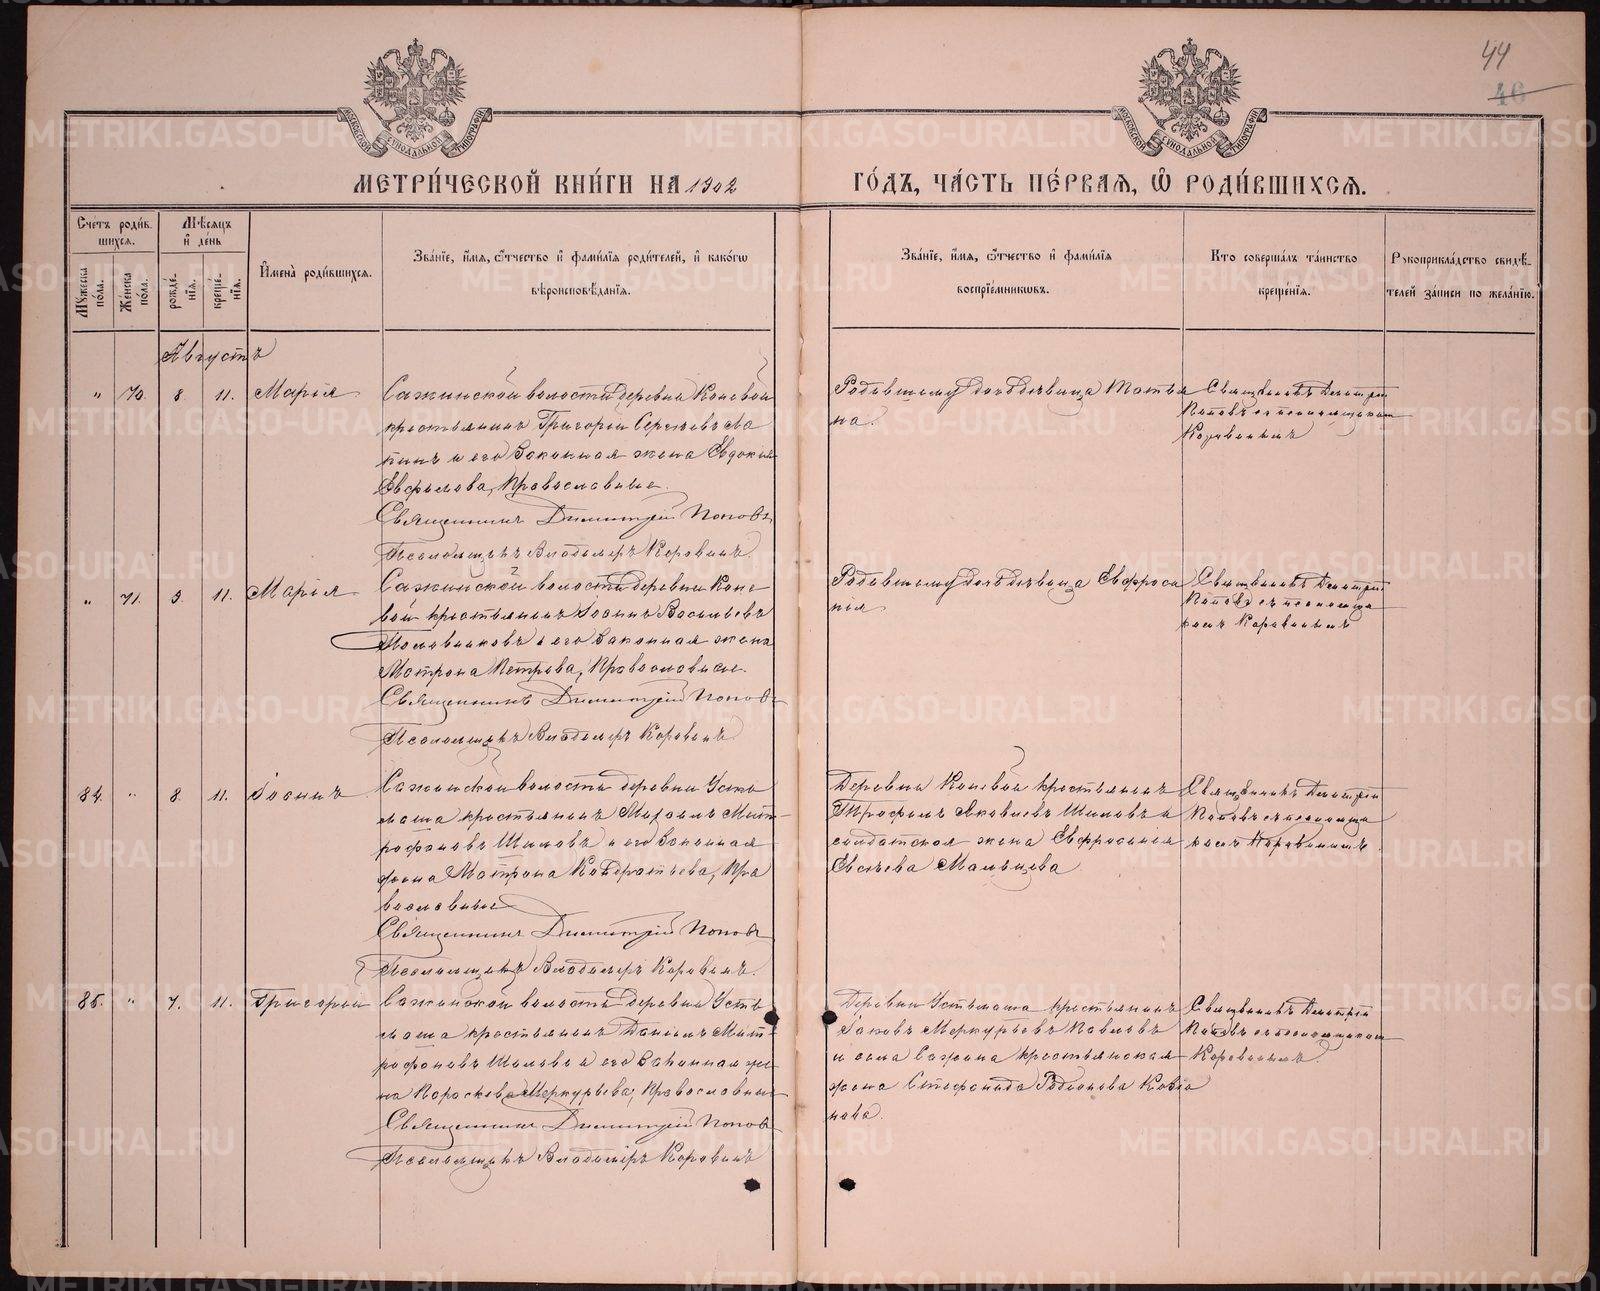 44
46
МОСКОВСКОЙ СѴНОДАЛЬНОЙ ТИПОГРАФІИ
МОСКОВСКОЙ СѴНОДАЛЬНОЙ ТИПОГРАФІИ
МЕТРИ́ЧЕСКОЙ КНИ́ГИ НА 1902
ГО́ДЪ, ЧА́СТЬ ПЕ́РВАЯ, Ѽ РОДИ́ВШИХСЯ.
Сче́тъ роди́в-
шихся.
Мѣсяцъ
и҆ де́нь
Мꙋжеска по́ла.
Же́нска по́ла.
рожде́-
нїя.
креще́-
нїя.
И҆мена̀ роди́вшихся.
Зва́нїе, и҆́мя, ѻ҆́тчество и҆ фами́лїя роди́телей, и҆ како́гѡ
вѣроисповѣ́данїя.
Зва́нїе, и҆́мя, ѻ҆́тчество и҆ фами́лїя
воспрїе́мникѡвъ.
Кто соверша́лъ та́инство
креще́нїя.
Рꙋкоприкла́дство свидѣ́-
телей за́писи по жела́нїю.
Августъ
" 70. 8. 11. Марія
Сажинской волости деревни Коневой
крестьянинъ Григорій Сергѣевъ
и его законная жена Евдокія
Евфимова, Православные.
Священникъ Димитрій Поповъ
Псаломщикъ Владиміръ Коровинъ.
Родившему дочь дѣвица Татья
на.
Священникъ Димитрій
Поповъ съ псаломщикомъ
Коровинымъ
" 71. 9. 11. Марія
Сажинской волости деревни Коне
вой крестьянинъ Іоаннъ Васильевъ
и его законная жена
Матрона Петрова, Православные.
Священникъ Димитрій Поповъ
Псаломщикъ Владиміръ Коровинъ.
Родившему дочь дѣвица Евфроси
нія
Священникъ Димитрій
Поповъ съ псаломщи
комъ Коровинымъ
84. " 8. 11. Іоаннъ
Сажинской волости деревни Усть
маша крестьянинъ Михаилъ Мит-
рофановъ Шиловъ и его законная
жена Матрона Кондратьева, Пра
вославные
Священникъ Димитрій Поповъ
Псаломщикъ Владиміръ Коровинъ.
Деревни Коневой крестьянинъ
Трофимъ Яковлевъ Шиловъ и
солдатская жена Евфросинія
Евсѣева Мальцева
Священникъ Димитрій
Поповъ съ псаломщи
комъ Коровинымъ
85. " 7. 11. Григорій
Сажинской волости деревни Усть
маша крестьянинъ Даніилъ Мит-
рофановъ Шиловъ и его законная же
на Параскева Меркурьева, Православные
Священникъ Димитрій Поповъ
Псаломщикъ Владиміръ Коровинъ
Деревни Устьмаша крестьянинъ
Іаковъ Меркурьевъ Павловъ
и села Сажина крестьянская
жена Стефанида Родіонова
Священникъ Димитрій
Поповъ съ псаломщикомъ
Коровинымъ.
METRIKI.GASO-URAL.RU